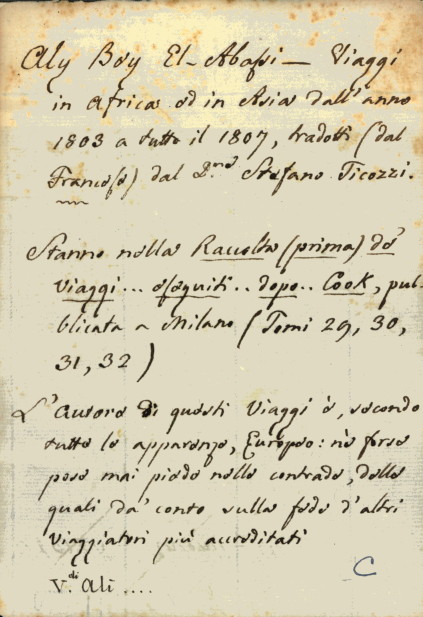 Aly Bey El-Abassi — Viaggi
in Africa ed in Asia dall'anno
1803 a tutto il 1807, tradotti (dal
Francese) dal D.nre Stefano Ticozzi.
Stanno nella Raccolta (prima) de'
viaggi... eseguiti.. dopo.. Cook, pub-
blicata a Milano (Tomi 29, 30,
31, 32)
L'autore di questi Viaggi è, secondo
tutte le apparenze, Europeo: nè forse
pose mai piede nelle contrade, delle
quali dà conto sulla fede d'altri
viaggiatori più accreditati
C
V.di Ali ....